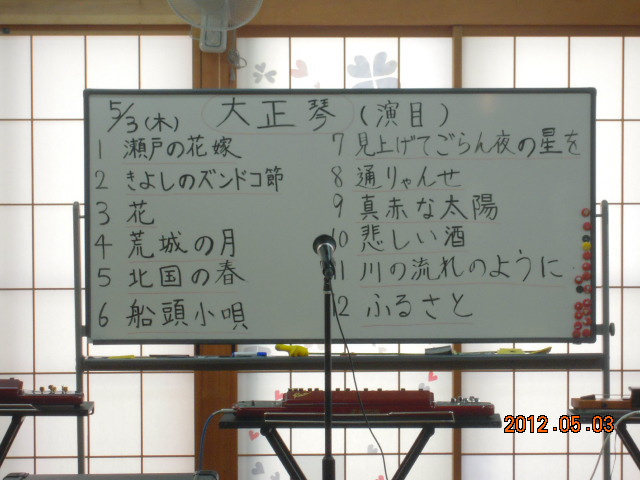 5/3(木) 大正琴 (演目)
1 瀬戸の花嫁
2 きよしのズンドコ節
3 花
4 荒城の月
5 北国の春
6 船頭小唄
7 見上げてごらん夜の星を
8 通りゃんせ
9 真赤な太陽
10 悲しい酒
11 川の流れのように
12 ふるさと
2012.05.03